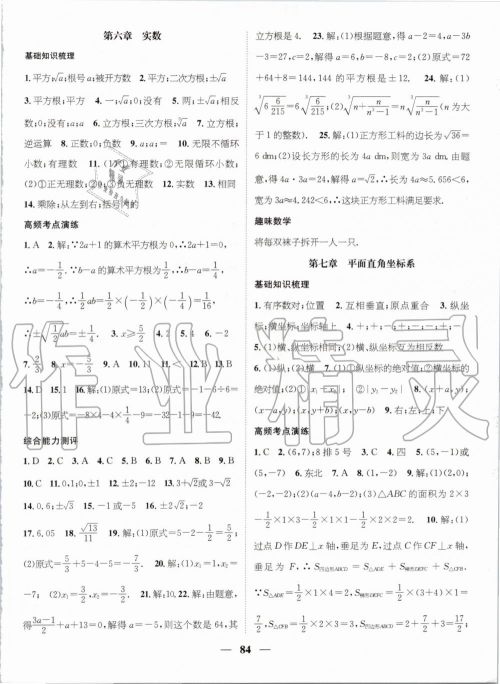 第六章　实数
基础知识梳理
1. 平方;√a;根号a;被开方数　2. 平方;二次方根;±√a
3. 平方根;平方　4. 一;√a;0;没有　5. 两;±√a;相反
数;0;没有;a;a　6. 立方根;三次方根;∛a　7. 立方根;
逆运算　8. 正数;0;负数　9. a;-∛a　10. 无限不循环
小数;有理数　11. (1)有理数;②无限循环小数;
(2)①正无理数;②0;③负无理数　12. 实数　13. 相同
14. 乘除;从左到右;括号内的
高频考点演练
1. A　2. 解:∵2a+1的算术平方根为0,∴2a+1=0,
∴a=-1/2.∵b-a的算术平方根为1/2,∴b-a=1/4,
∴b=-1/4,∴1/2ab=1/2×(-1/2)×(-1/4)=1/16,
∴±√(1/2ab)=±1/4.　3. x≥5/2　4. 2　5. 4　6. -2
7. 2/3　8. x=5　9. D　10. D　11. <　12. B　13. C
14. D　15. 1　16. 解:(1)原式=-1-6÷6=
-2;(2)原式=-8×4-4×1/4-3=-32-1-9=-42.
综合能力测评
1. D　2. C　3. A　4. B　5. A　6. D　7. C　8. D　9. B
10. C　11. 0,1;0,±1　12. ±2;-12　13. 3+√2或3-√2
14. 0.6;±√3　15. -1或-5　16. ±2√2;-2
17. 6.05　18. √13/11　19. 解:(1)原式=5-2-1/2=5/2;
(2)原式=5/3+5/3-4=-5/7.　20. 解:(1)x₁=1,x₂=
-7;　21. 解:10.　22. 解:由题意,
得(3a-1)/2+a+13=0,解得a=-5.则这个数是64,其
立方根是4.　23. 解:(1)根据题意,得a-2=4,a-3b
-3=27,c=2,解得a=6,b=-8,c=2;(2)原式=72
+64+8=144,144的平方根是±12.　24. 解:(1)
∛(6 6/215)=6∛(6/215);(2)∛(n+n/(n³-1))=n∛(n/(n³-1))(n为大
于1的整数).　25. 解:(1)正方形工料的边长为√36=
6 dm;(2)设长方形的长为4a dm,则宽为3a dm.由题
意,得4a·3a=24,解得a=√2,∴长为4a≈5.656<6,
宽为3a≈4.242<6,∴这块正方形工料满足要求.
趣味数学
将每双袜子拆开一人一只.
第七章　平面直角坐标系
基础知识梳理
1. 有序数对;位置　2. 互相垂直;原点重合　3. 纵坐
标;横坐标;坐标轴上　4. +;+;-;+;-;-;+;-
5. (1)横、纵坐标相同;(2)横、纵坐标互为相反数
6. (1)纵;(2)横　7. (1)①纵坐标的绝对值;②横坐标的
绝对值;(2)①|x₁-x₂|;②|y₁-y₂|　8. (x+a,y);
(x-a,y);(x,y+b);(x,y-b)　9. 右;左;上;下
高频考点演练
1. C　2. (6,7);8排5号　3. C　4. 四　5. (5,-1)或
(5,-7)　6. 东北　7. A　8. (1,-2)　9. 解:(1)(2,0);
(-2,-2);(2)(a-4,b-2);(3)△ABC的面积为2×3
-1/2×1×3-1/2×1×1-1/2×2×2=2.　10. 解:(1)
过点D作DE⊥x轴,垂足为E,过点C作CF⊥x轴,
垂足为F,∴S四边形ABCD=S△ADE+S梯形DEFC+S△CFB.
∵S△ADE=1/2×1×4=2,S梯形DEFC=1/2×(3+4)×1=
7/2,S△CFB=1/2×2×3=3,S四边形ABCD=2+7/2+3=17/2,
84